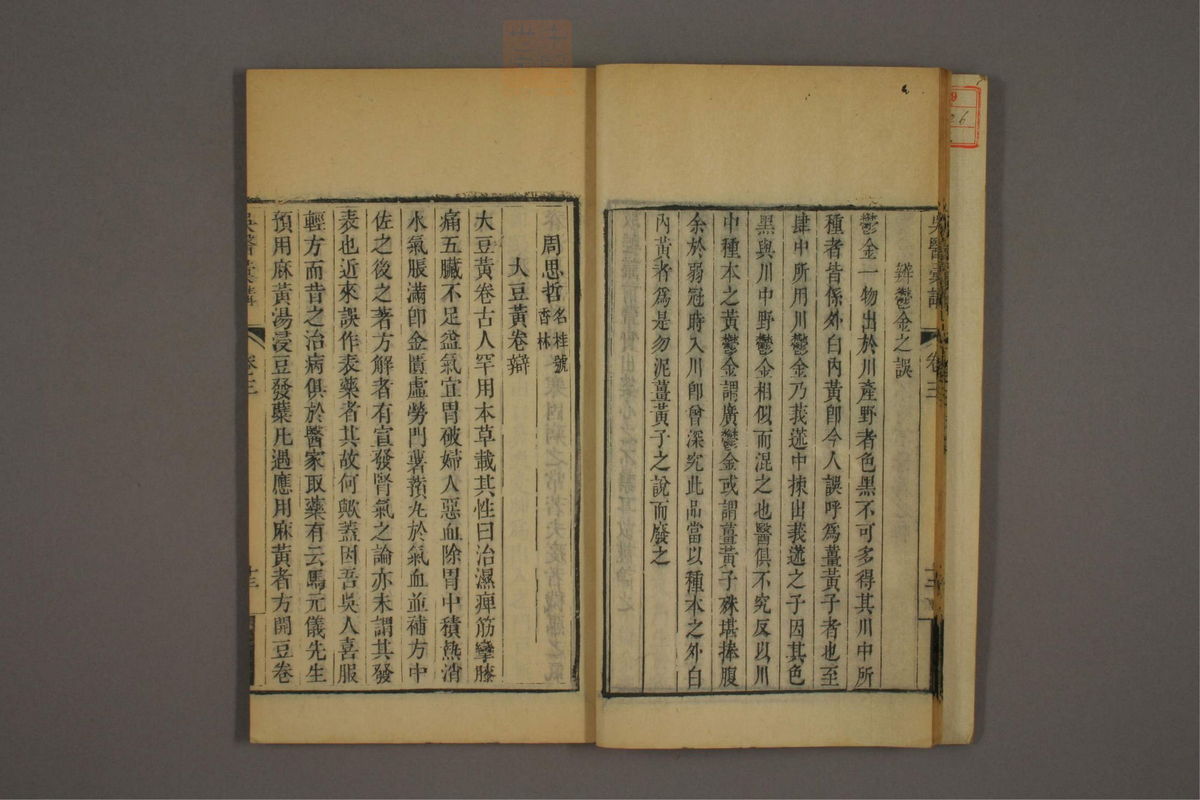 辯鬱金之誤
鬱金一物出於川產野者色黑不可多得其川中所
種者皆係外白內黃卽今人誤呼爲薑黃子者也至
肆中所用川鬱金乃莪蒁中揀出莪蒁之子因其色
黑與川中野鬱金相似而混之也醫俱不究反以川
中種本之黃鬱金謂廣鬱金或謂薑黃子殊堪捧腹
余於弱冠時入川卽曾深究此品當以種本之外白
內黃者爲是勿泥薑黃子之說而廢之
吳醫彙講
卷三
周思哲名桂號香林
大豆黃卷辯
大豆黃卷古人罕用本草載其性曰治濕痺筋攣膝
痛五臟不足益氣宜胃破婦人惡血除胃中積熱消
水氣脹滿卽金匱虛勞門薯蕷丸於氣血並補方中
佐之後之著方解者有宣發腎氣之論亦未謂其發
表也近來誤作表藥者其故何歟蓋因吾吳人喜服
輕方而昔之治病俱於醫家取藥有云馬元儀先生
預用麻黃湯浸豆發蘖凡遇應用麻黃者方開豆卷
吳醫彙講
卷三
十三